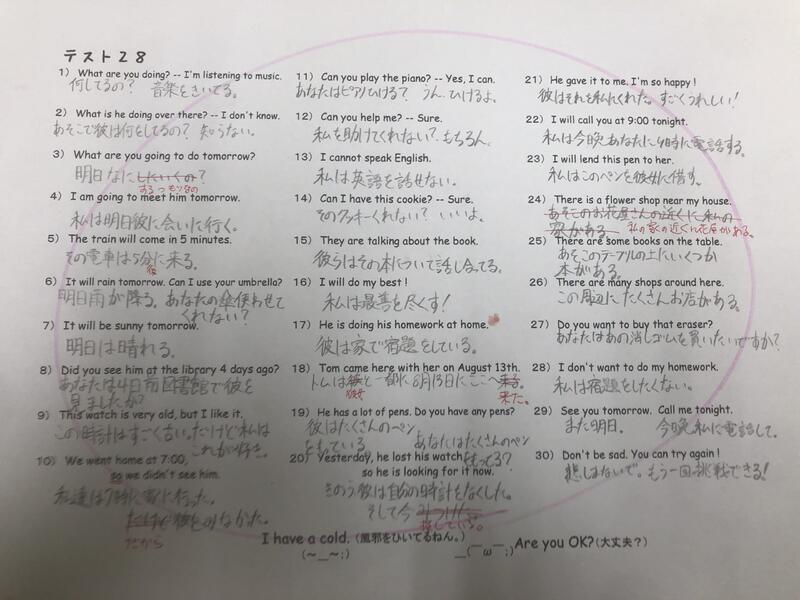 テスト28
1) What are you doing? -- I'm listening to music.
何してるの? 音楽をきいてる。
2) What is he doing over there? -- I don't know.
あそこで彼は何をしてるの? 知らない。
3) What are you going to do tomorrow?
明日なにしたいくの?
するつもりなの
4) I am going to meet him tomorrow.
私は明日彼に会いに行く。
5) The train will come in 5 minutes.
その電車は5分に来る。
後
6) It will rain tomorrow. Can I use your umbrella?
明日雨が降る。あなたの傘使わせて
くれない?
7) It will be sunny tomorrow.
明日は晴れる。
8) Did you see him at the library 4 days ago?
あなたは4日前図書館で彼を
見ましたか?
9) This watch is very old, but I like it.
この時計はすごく古い。だけど私は
これが好き。
10) We went home at 7:00,
so we didn't see him.
私達は7時に家に行った。
だけど彼をみなかた。
だから
11) Can you play the piano? -- Yes, I can.
あなたはピアノひける? うん、ひけるよ。
12) Can you help me? -- Sure.
私を助けてくれない? もちろん。
13) I cannot speak English.
私は英語を話せない。
14) Can I have this cookie? -- Sure.
そのクッキーくれない? いいよ。
15) They are talking about the book.
彼らはその本について話し合ってる。
16) I will do my best !
私は最善を尽くす!
17) He is doing his homework at home.
彼は家で宿題をしている。
18) Tom came with her on August 13th.
トムは彼と一緒に8月13日にここへ来る。
彼女
来た。
19) He has a lot of pens. Do you have any pens?
彼はたくさんのペン
をもっている あなたはたくさんのペン
もってる?
20) Yesterday, he lost his watch
so he is looking for it now.
きのう彼は自分の時計をなくした。
そして今みつけた
探している。
21) He gave it to me. I'm so happy !
彼はそれを私にくれた。すごくうれしい!
22) I will call you at 9:00 tonight.
私は今晩あなたに9時に電話する。
23) I will lend this pen to her.
私はこのペンを彼女に借す。
24) There is a flower shop near my house.
あそこのお花屋さんの近くに私の
家がある
私の家の近くに花屋がある。
25) There are some books on the table.
あそこのテーブルの上にいくつか
本がある。
26) There are many shops around here.
この周辺にたくさんお店がある。
27) Do you want to buy that eraser?
あなたはあの消しゴムを買いたいですか?
28) I don't want to do my homework.
私は宿題をしたくない。
29) See you tomorrow. Call me tonight.
また明日。 今晩私に電話して。
30) Don't be sad. You can try again !
悲しまないで。もう一回挑戦できる!
I have a cold. (風邪をひいてるねん。)
(~__~;)
__(￣ω￣;) Are you OK? (大丈夫?)